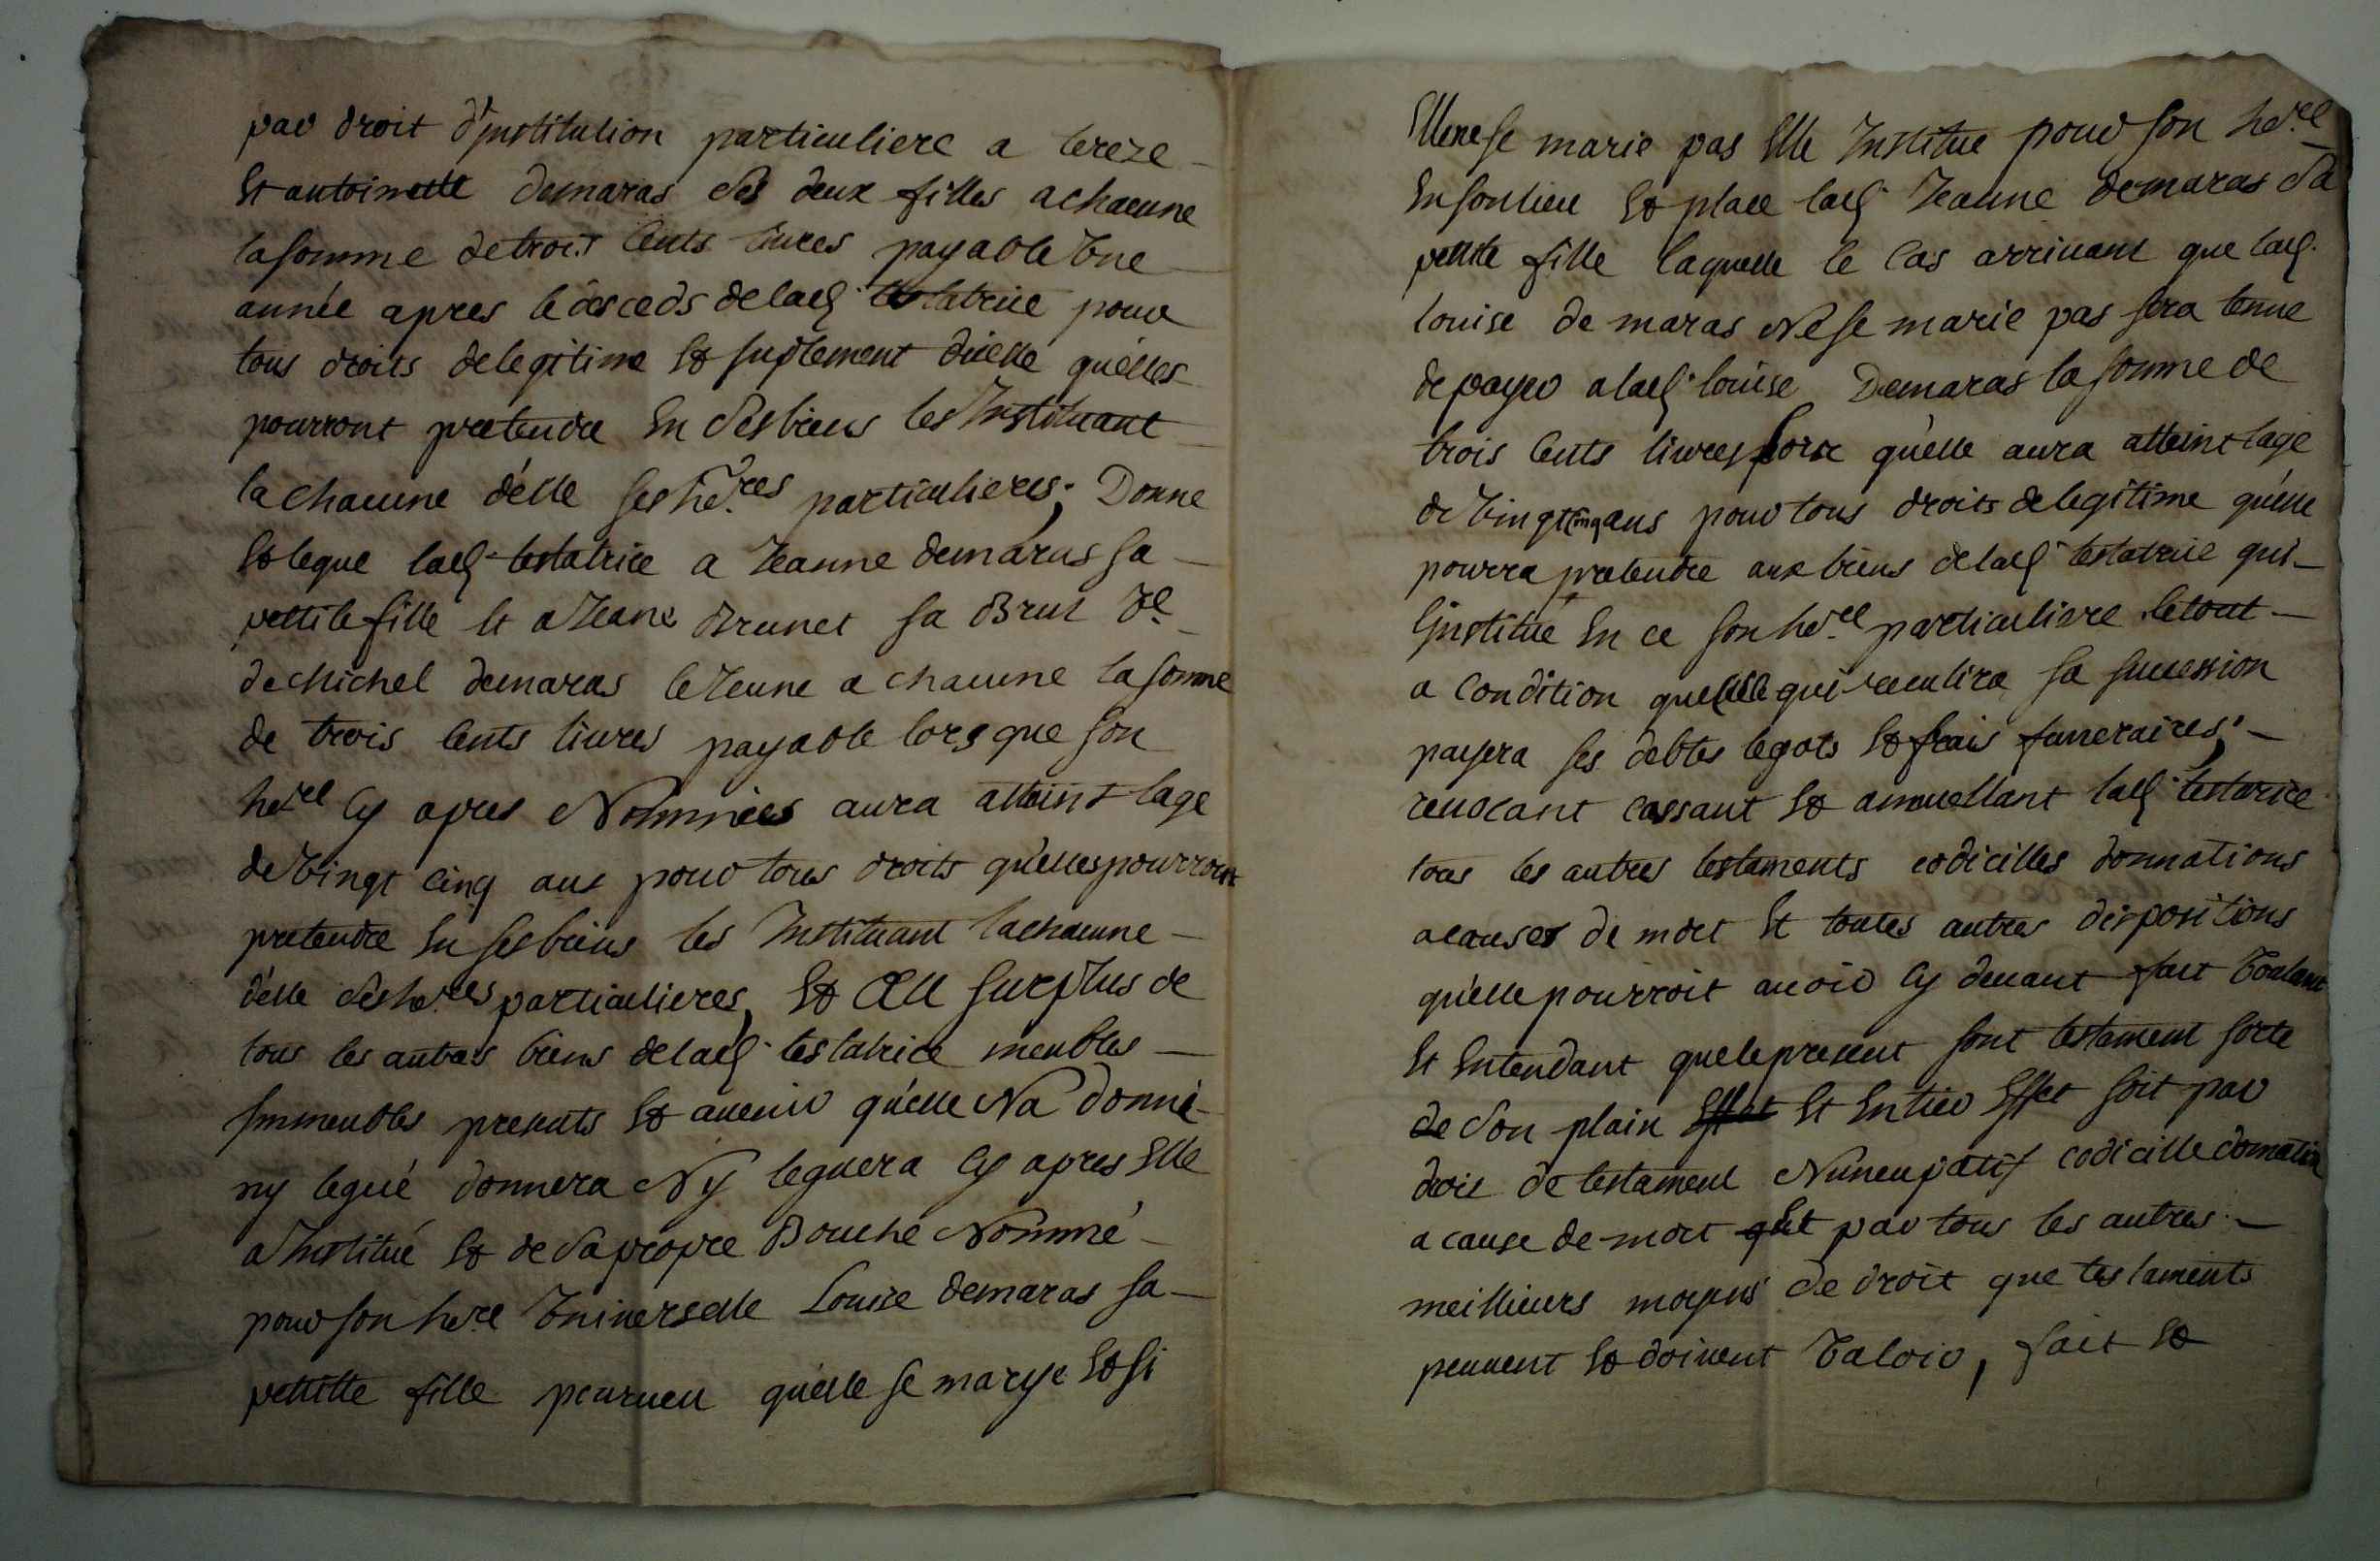 par droit d'institution particuliere a tereze
Et antoinette demaras ses deux filles a chacune
la somme de trois cents livres payable Une
année apres le desceds de lad. testatrice pour
tous droits de legitime et suplement d'icelle qu'elles
pourront pretendre En ses biens les Instituant
la chacune d'elle ses he.res particulieres; Donne
et legue lad. testatrice a Jeanne demaras sa
pettite fille et a Jeane Brunet sa Brut Ve.
de Michel demaras le Jeune a chacune la somme
de trois cents livres payable lors que son
he.re cy apres Nommées aura atteint lage
de Vingt cinq ans pour tous droits qu'elles pourront
pretendre En ses biens les Instituant la chacune
d'elle ses he.res particulieres, et Au surplus de
tous les autres biens de lad. testatrice meubles
Immeubles presents et avenir qu'elle Na donné
ny legué donnera Ny leguera cy apres Elle
a Institué et de sa propre Bouche Nommé
pour son he.re Universelle Louise demaras sa
pettitte fille pourveu qu'elle se marye et si
Elle ne se marie pas Elle Institue pour son he.re
En son lieu et place lad. Jeanne demaras Sa
petite fille laquelle le Cas arrivant que lad.
louise de maras Ne se marie pas sera tenue
de payer a lad. louise Demaras la somme de
trois Cents livres lors qu'elle aura atteint lage
de Vingt cinq ans pour tous droits de legitime qu'elle
pourra pretendre aux biens de lad. testatrice qui
l'institue En ce son he.re particuliere le tout
a Condition que celle qui receulira sa succession
payera ses debtes legats et frais funeraires;
revocant cassant et annuellant lad. testatrice
tous les autres testaments codicilles donnations
a causes de mort Et toutes autres dispositions
qu'elle pourroit avoir Cy devant fait Voulant
Et Entendant que le present sont testament sorte
de Son plain Effet Et Entier Effet soit par
droit de testament Nuncupatif codicille donnation
a cause de mort Et par tous les autres
meillieurs moyens de droit que testaments
peuvent et doivent Valoir, fait et